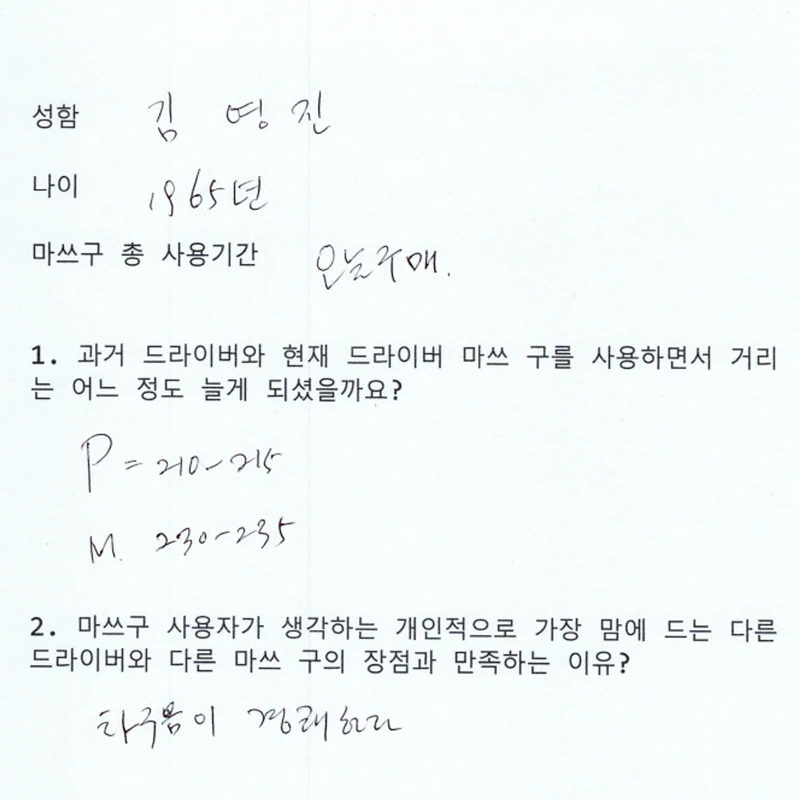 성함 김 영 진
나이 1965년
마쓰구 총 사용기간 오늘구매.
1. 과거 드라이버와 현재 드라이버 마쓰 구를 사용하면서 거리
는 어느 정도 늘게 되셨을까요?
P = 210~215
M. 230~235
2. 마쓰구 사용자가 생각하는 개인적으로 가장 맘에 드는 다른
드라이버와 다른 마쓰 구의 장점과 만족하는 이유?
타구음이 경쾌하다